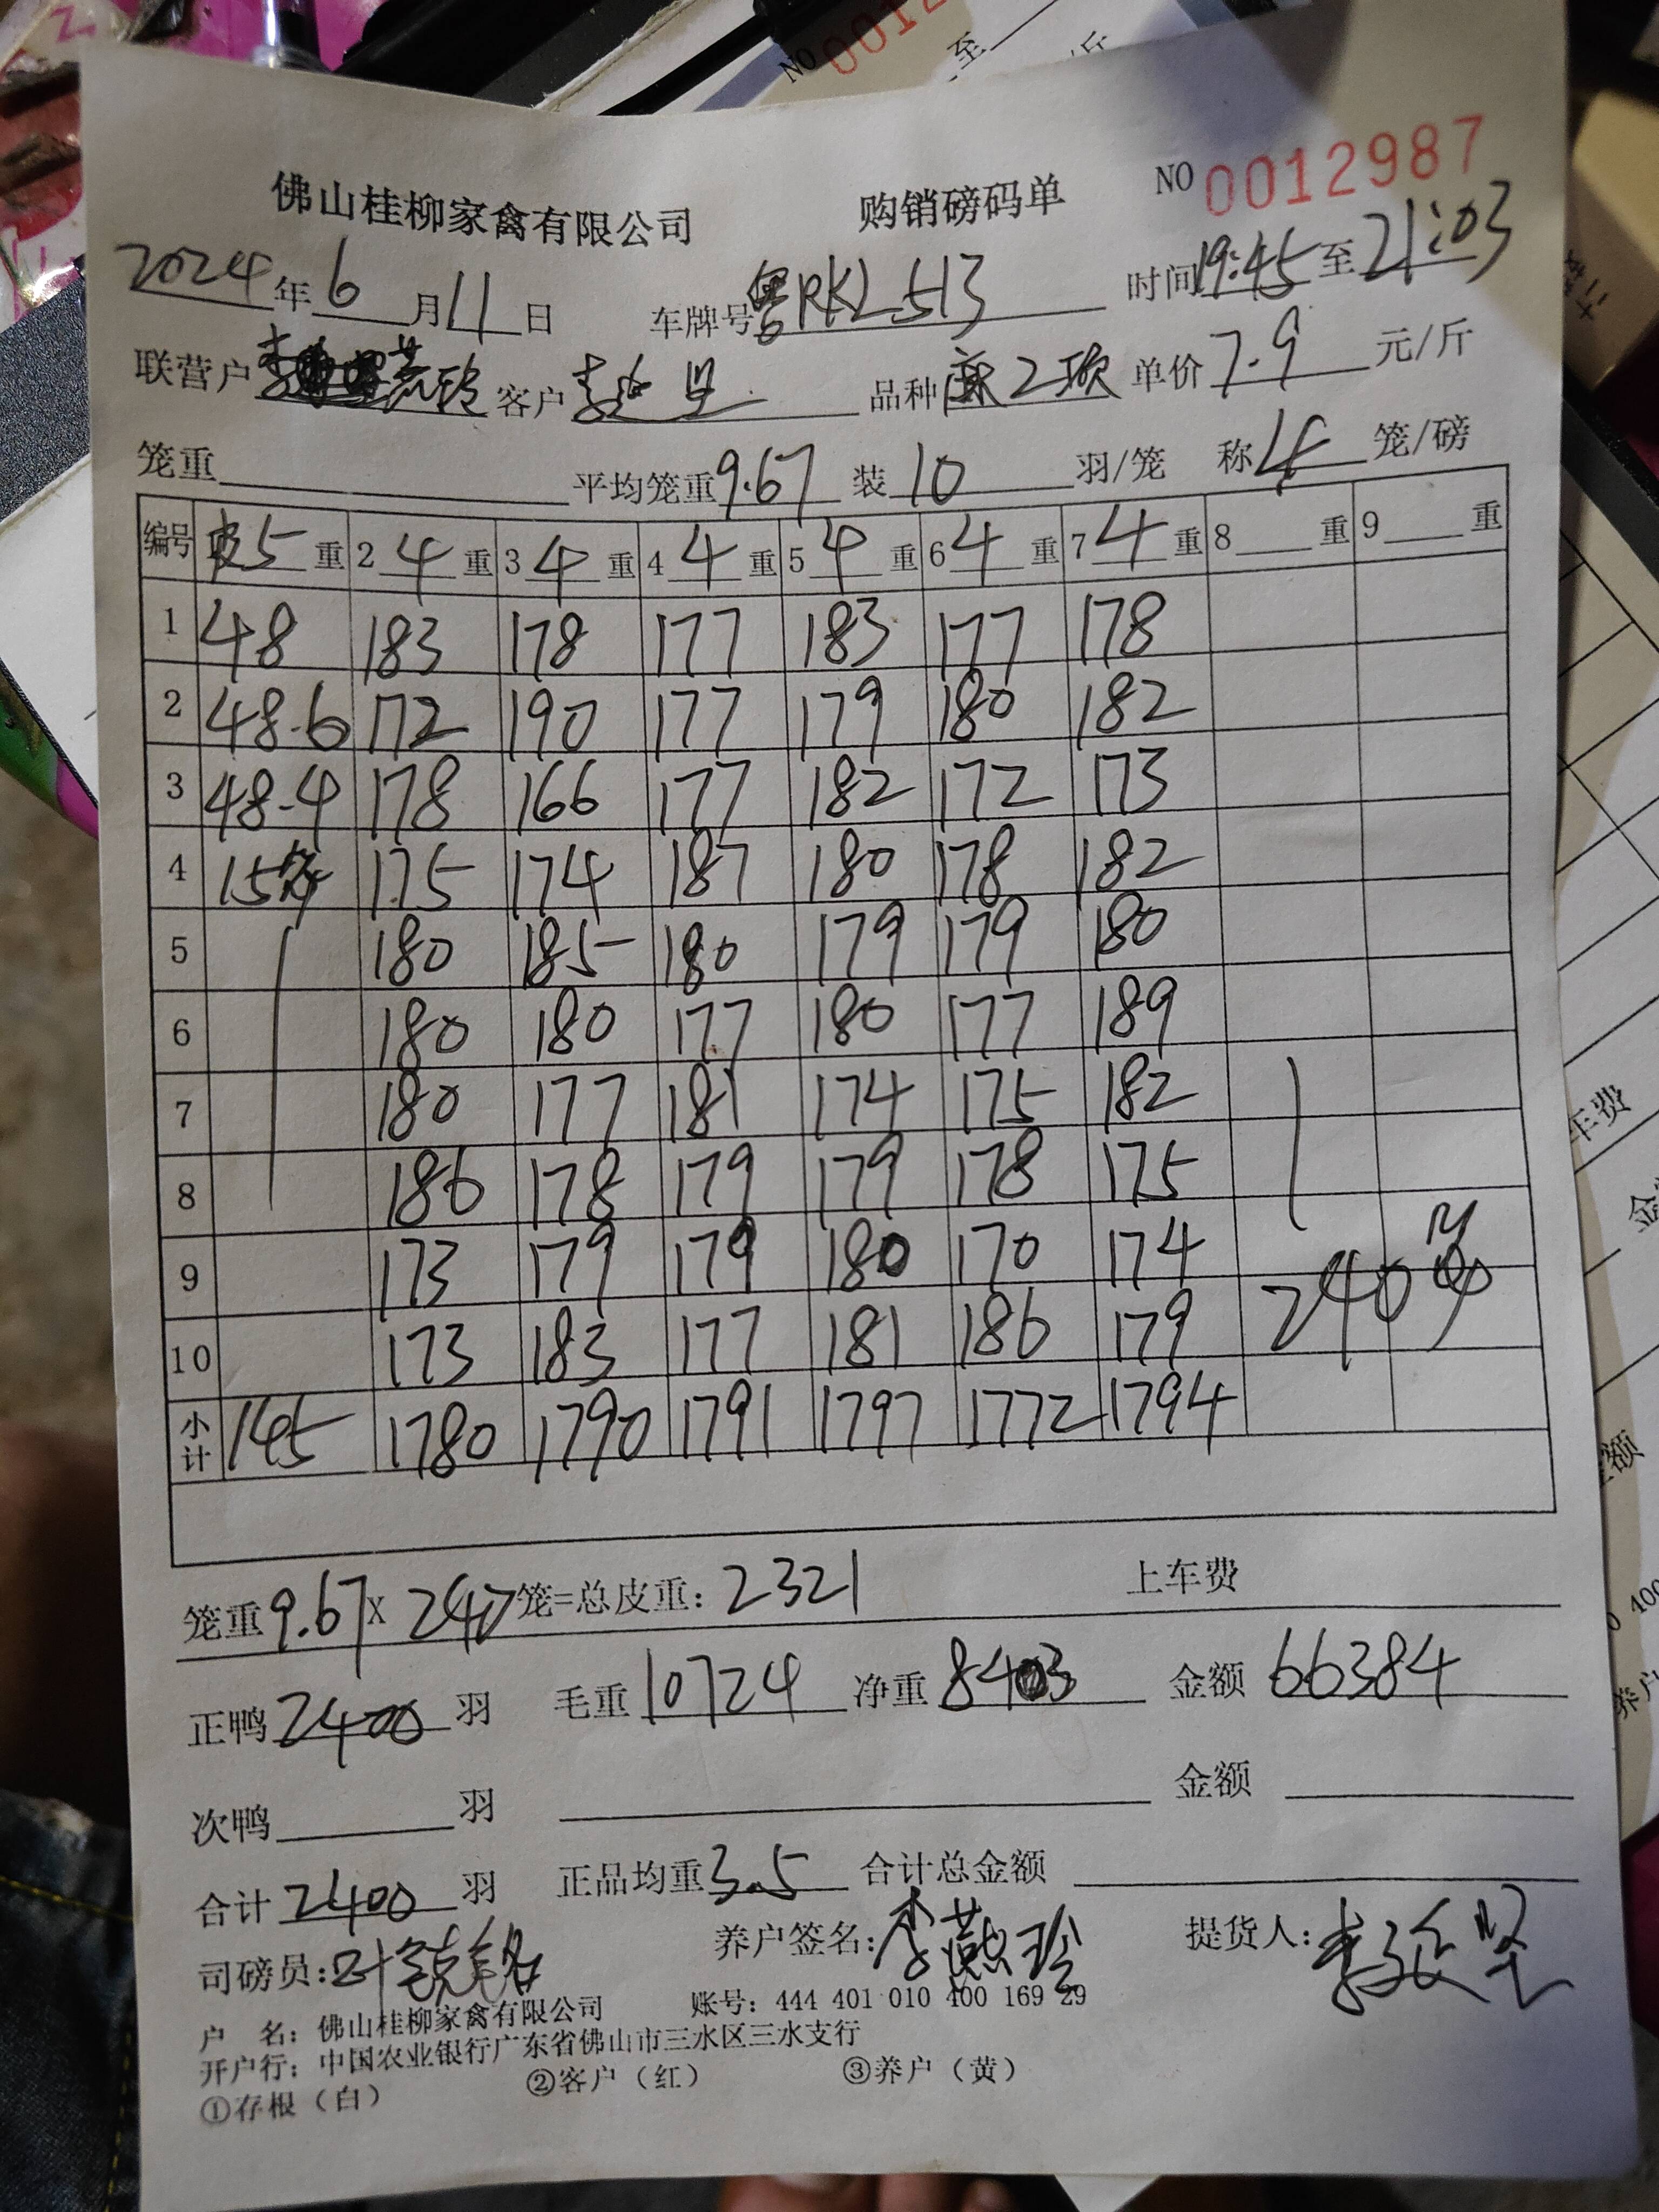 佛山桂柳家禽有限公司 购销磅码单 NO 0012987
2024年6月11日 车牌号粤RKL513 时间19:45至21:03
联营户李燕玲 客户李延坚 品种麻2 单价7.9元/斤
笼重 平均笼重9.67 装10羽/笼 称4笼/磅
编号 皮5重 2 4重 3 4重 4 4重 5 4重 6 4重 7 4重 8 重 9 重
1 48 183 178 177 183 177 178
2 48.6 172 190 177 179 180 182
3 48.4 178 166 177 182 172 173
4 15笼 175 174 187 180 178 182
5 180 185 180 179 179 180
6 180 180 177 180 177 189
7 180 177 181 174 175 182
8 186 178 179 179 178 175
9 173 179 179 180 170 174
10 173 183 177 181 186 179 240笼
小计 145 1780 1790 1791 1797 1772 1794
笼重9.67x 240笼=总皮重：2321 上车费
正鸭2400羽 毛重10724 净重8403 金额66384
次鸭 羽 金额
合计2400羽 正品均重3.5 合计总金额
司磅员：叶 养户签名：李燕玲 提货人：李延坚
户 名：佛山桂柳家禽有限公司 账号：444 401 010 400 169 29
开户行：中国农业银行广东省佛山市三水区三水支行
①存根（白） ②客户（红） ③养户（黄）